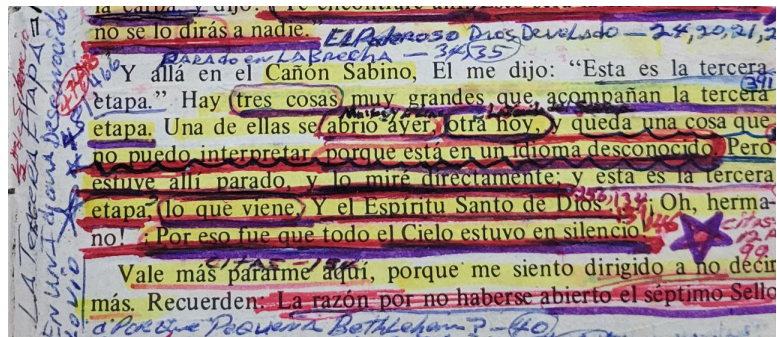 la carpa, y dijo: "Te encontraré
no se lo dirás a nadie."
El Poderoso Dios Develado — 24,20,21,2
PARADO en LA BRECHA — 34,35
Y allá en el Cañón Sabino, El me dijo: "Esta es la tercera
391
etapa." Hay tres cosas muy grandes que acompañan la tercera
etapa. Una de ellas se abrió ayer, otra hoy, y queda una cosa que
no puedo interpretar, porque está en un idioma desconocido. Pero
estuve allí parado, y lo miré directamente; y esta es la tercera
256,134
etapa, lo que viene. Y el Espíritu Santo de Dios... ¡Oh, herma-
no! ¡Por eso fue que todo el Cielo estuvo en silencio!
citas
99
CITAS — 154
Vale más pararme aquí, porque me siento dirigido a no decir
más. Recuerden: La razón por no haberse abierto el séptimo Sello
¿Por que Pequeña Bethlehem? — 40
LA Tercera ETAPA =
EN UN Idioma Desconocido
LO VIO
466